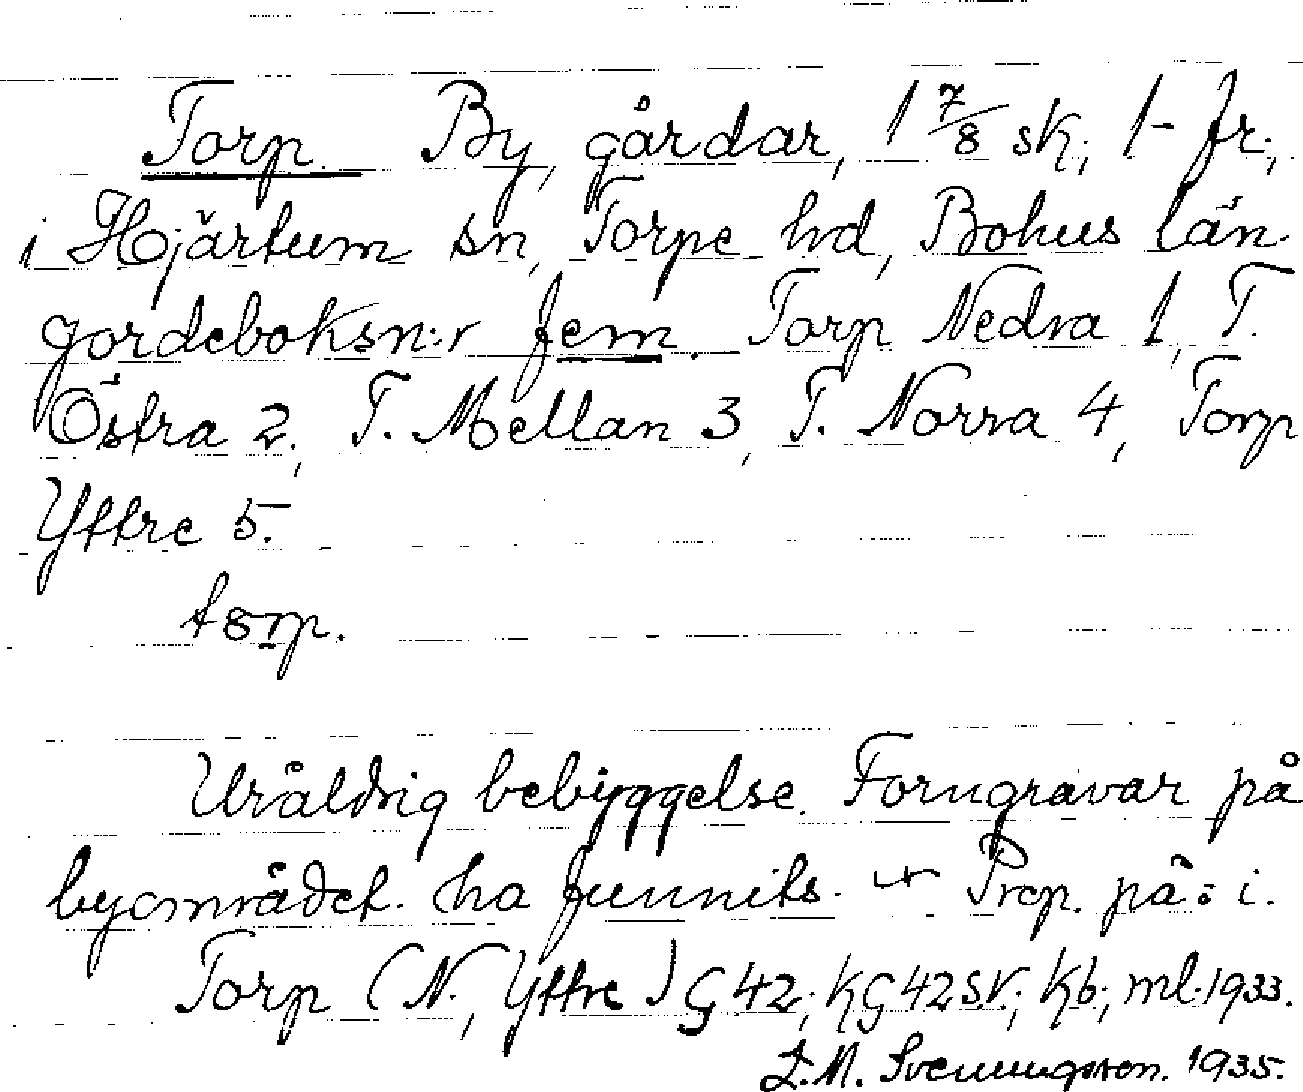 Torp. By, gårdar, 1 7/8 sk; 1 - fr;
i Hjärtum sn, Torpe hd, Bohus län.
gordeboksn:r fem. Torp Nedra 1, T.
Östra 2, T. Mellan 3, T. Norra 4, Torp
Yttre 5.
torp.
Uråldrig bebyggelse. Forngravar på
byområdet ha funnits. Prep. på: i.
Torp (N., Yttre) G 42; KG 42 SV; Kb; ml. 1933.
L.M. Svenungsson. 1935.